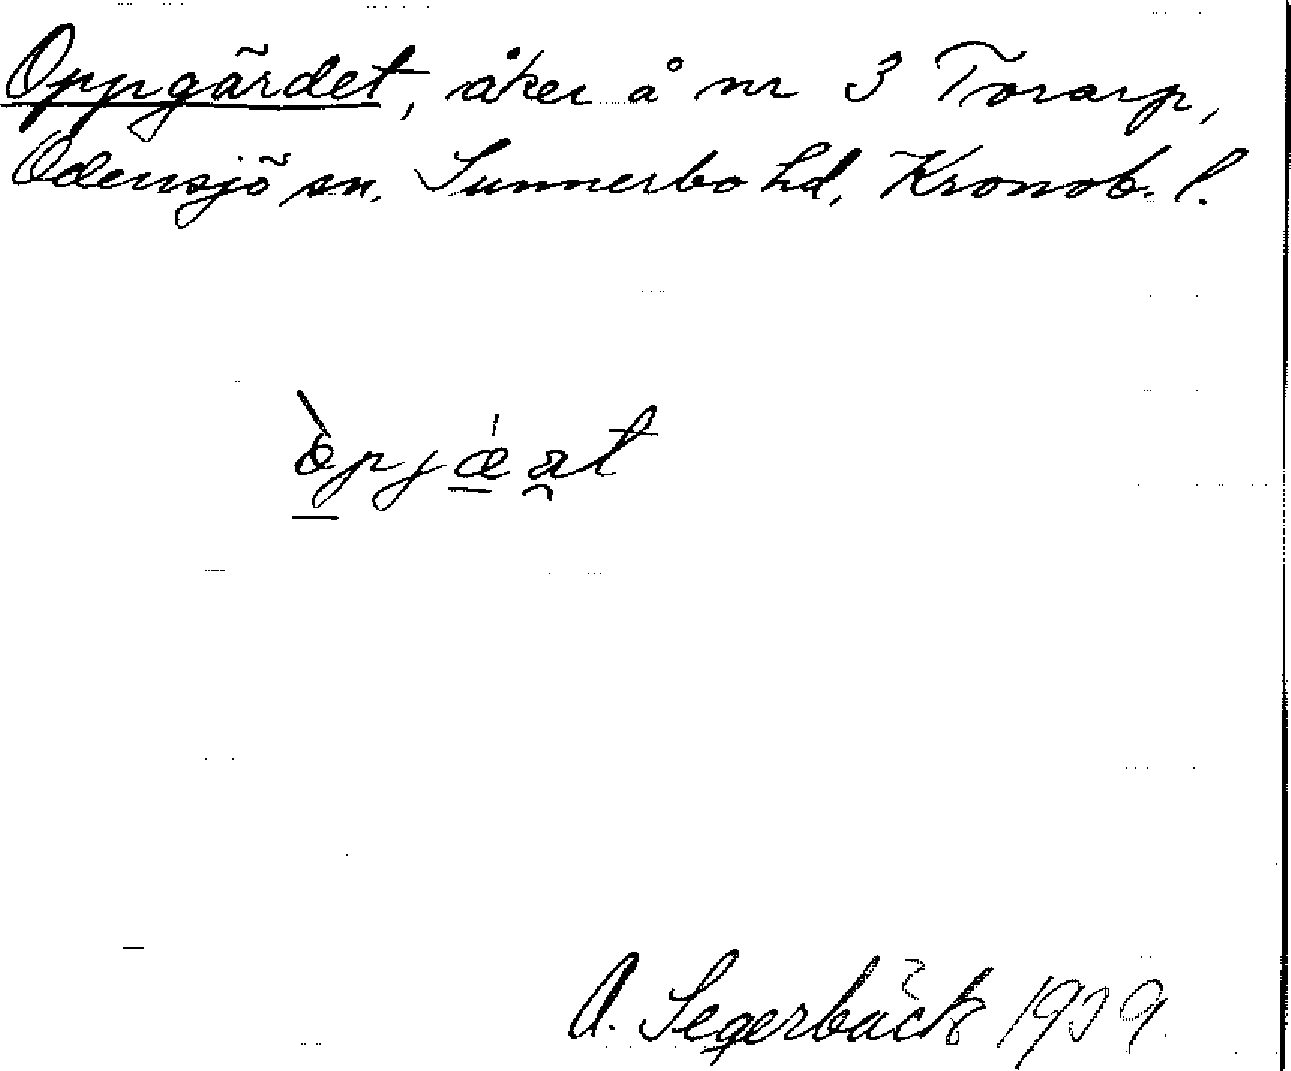 Oppgärdet, åker å nr 3 Torarp,
Odensjö sn. Sunnerbo hd, Kronob. l.
òpjǽ̠at
A. Segerbäck 1939